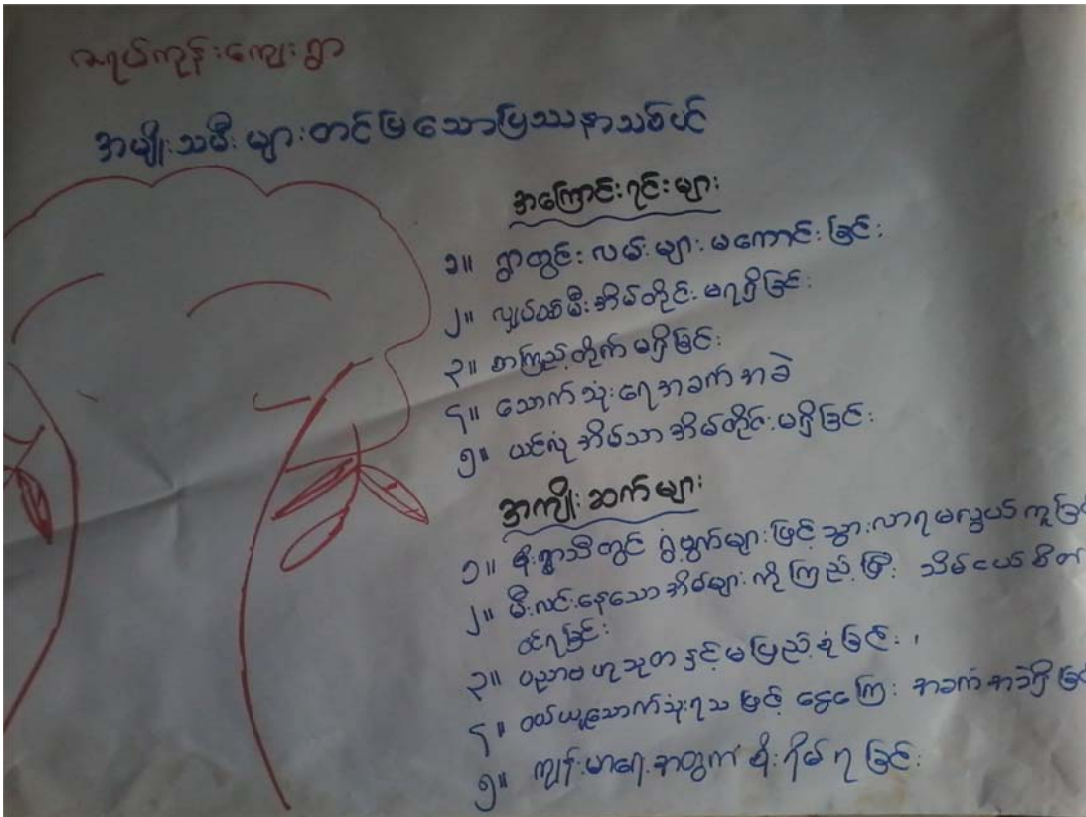 ကုန်းကျေးရွာ
အမျိုးသမီးများတင်ပြသောပြဿနာသစ်ပင်
အကြောင်းရင်းများ
၁။ ရွာတွင်းလမ်းများမကောင်းခြင်း
၂။ လျှပ်စစ်မီးအိမ်တိုင်းမရရှိခြင်း
၃။ စာကြည့်တိုက်မရှိခြင်း
၄။ သောက်သုံးရေအခက်အခဲ
၅။ ယင်လုံအိမ်သာအိမ်တိုင်းမရှိခြင်း
အကျိုးဆက်များ
၁။ မိုးရွာသီတွင် ရွှံ့ဗွက်များဖြင့် သွားလာရမလွယ်ကူခြင်
၂။ မီးလင်းနေသောအိမ်များကိုကြည့်ပြီး သိမ်ငယ်စိတ်
ဝင်ရခြင်း
၃။ ပညာဗဟုသုတနှင့်မပြည့်စုံခြင်း၊
၄။ ဝယ်ယူသောက်သုံးရသဖြင့် ငွေကြေးအခက်အခဲရှိခြင်
၅။ ကျန်းမာရေးအတွက်စိုးရိမ်ရခြင်း